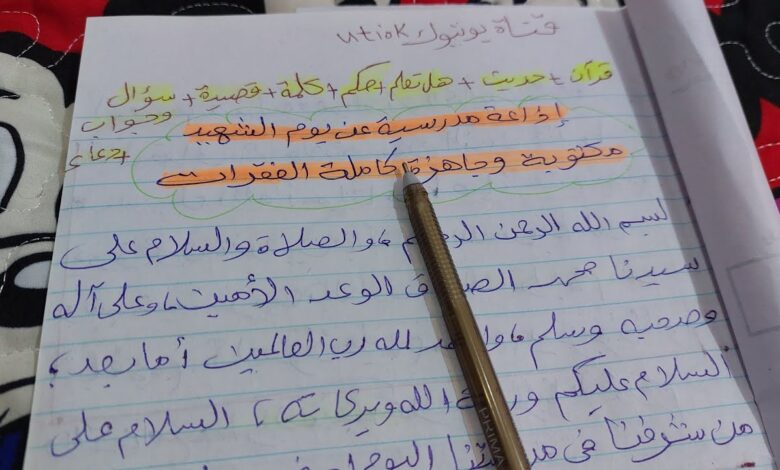 قناة يوتيوك utiok
قرآن + حديث + هل تعلم + حكم + كلمة + قصيدة + سؤال
وجواب
+ دعاء
إذاعة مدرسية عن يوم الشهيد
مكتوبة وجاهزة كاملة الفقرات
بسم الله الرحمن والصلاة والسلام على
سيدنا محمد الوعد الأمين، وعلى آله
وصحبه وسلم، لله رب العالمين أما بعد؛
السلام عليكم الله وبركاته، السلام على
من شرفنا في اليوم
PRIMA